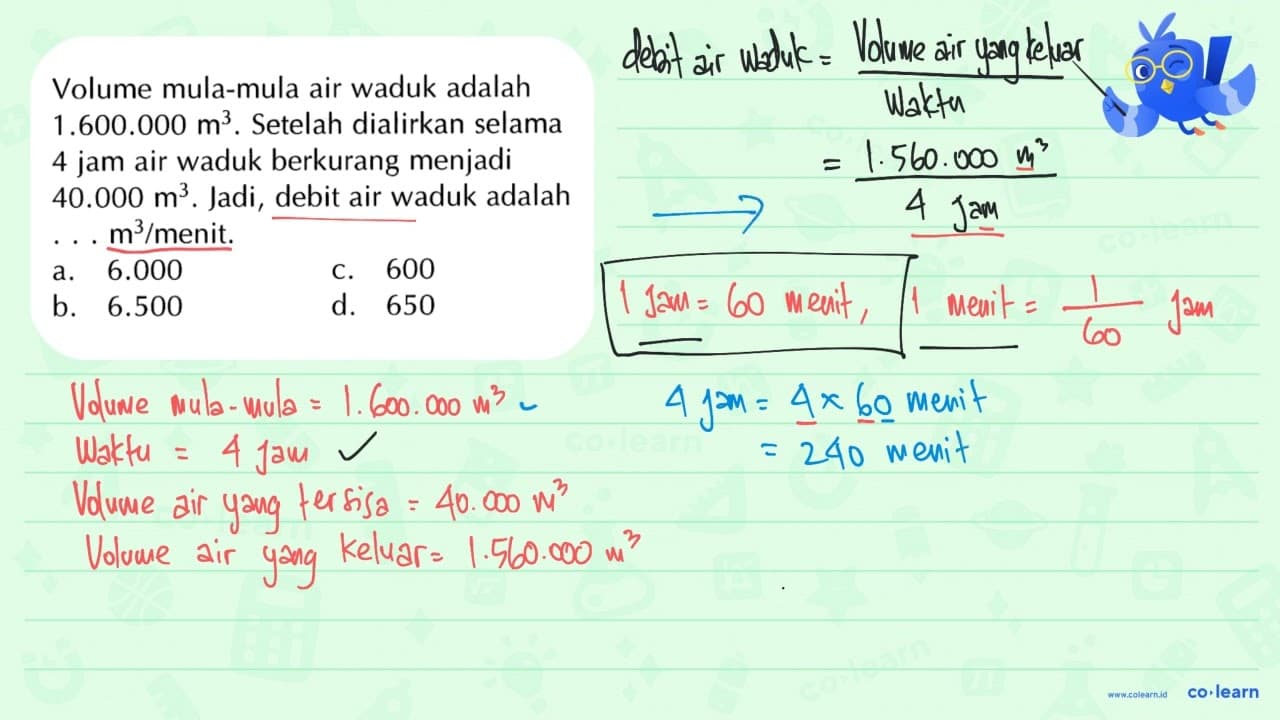 Volume mula-mula air waduk adalah
1.600.000 m³. Setelah dialirkan selama
4 jam air waduk berkurang menjadi
40.000 m³. Jadi, debit air waduk adalah
. . . m³/menit.
a. 6.000 c. 600
b. 6.500 d. 650
debit air waduk = Volume air yang keluar
Waktu
= 1.560.000 m³
4 jam
1 jam = 60 menit, 1 menit = 1/60 jam
Volume mula-mula = 1.600.000 m³
Waktu = 4 jam
Volume air yang tersisa = 40.000 m³
Volume air yang keluar = 1.560.000 m³
4 jam = 4 × 60 menit
= 240 menit
www.colearn.id co·learn